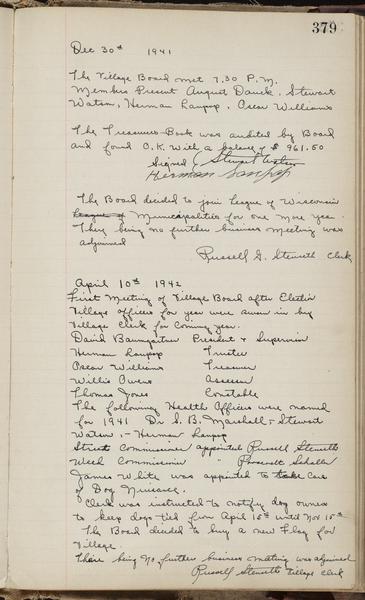 379
Dec 30th 1941
The Village Board met 7.30 P.M.
Members Present August Danck, Stewart
Watson, Herman Lanpop, Oscar Williams
The Treasurers Book was audited by Board
and found O.K. With a balance of $ 961.50
Signed Stewart Watson
Herman Lanpop
The Board decided to join League of Wisconsin
League of Municipalities for one more year.
There being no further business meeting was
adjourned
Russell G. Stenseth Clerk
April 10th 1942
First Meeting of Village Board after Election
Village officers for year were sworn in by
Village Clerk for coming year.
David Baumgartner President & Supervisor
Herman Lanpop Trustee
Oscar Williams Treasurer
Willis Owens Assessor
Thomas Jones Constable
The following Health Officers were named
for 1941 Dr S. B. Marshall - Stewart
Watson - Herman Lanpop
Street Commissioner appointed Russell Stenseth
Weed Commissioner "
James White was appointed to take care
of Dog Nuisance.
Clerk was instructed to notify dog owners
to keep dogs tied from April 15th until Nov 15th
The Board decided to buy a new Flag for
Village
There being No further business meeting was adjourned
Russell Stenseth Village Clerk